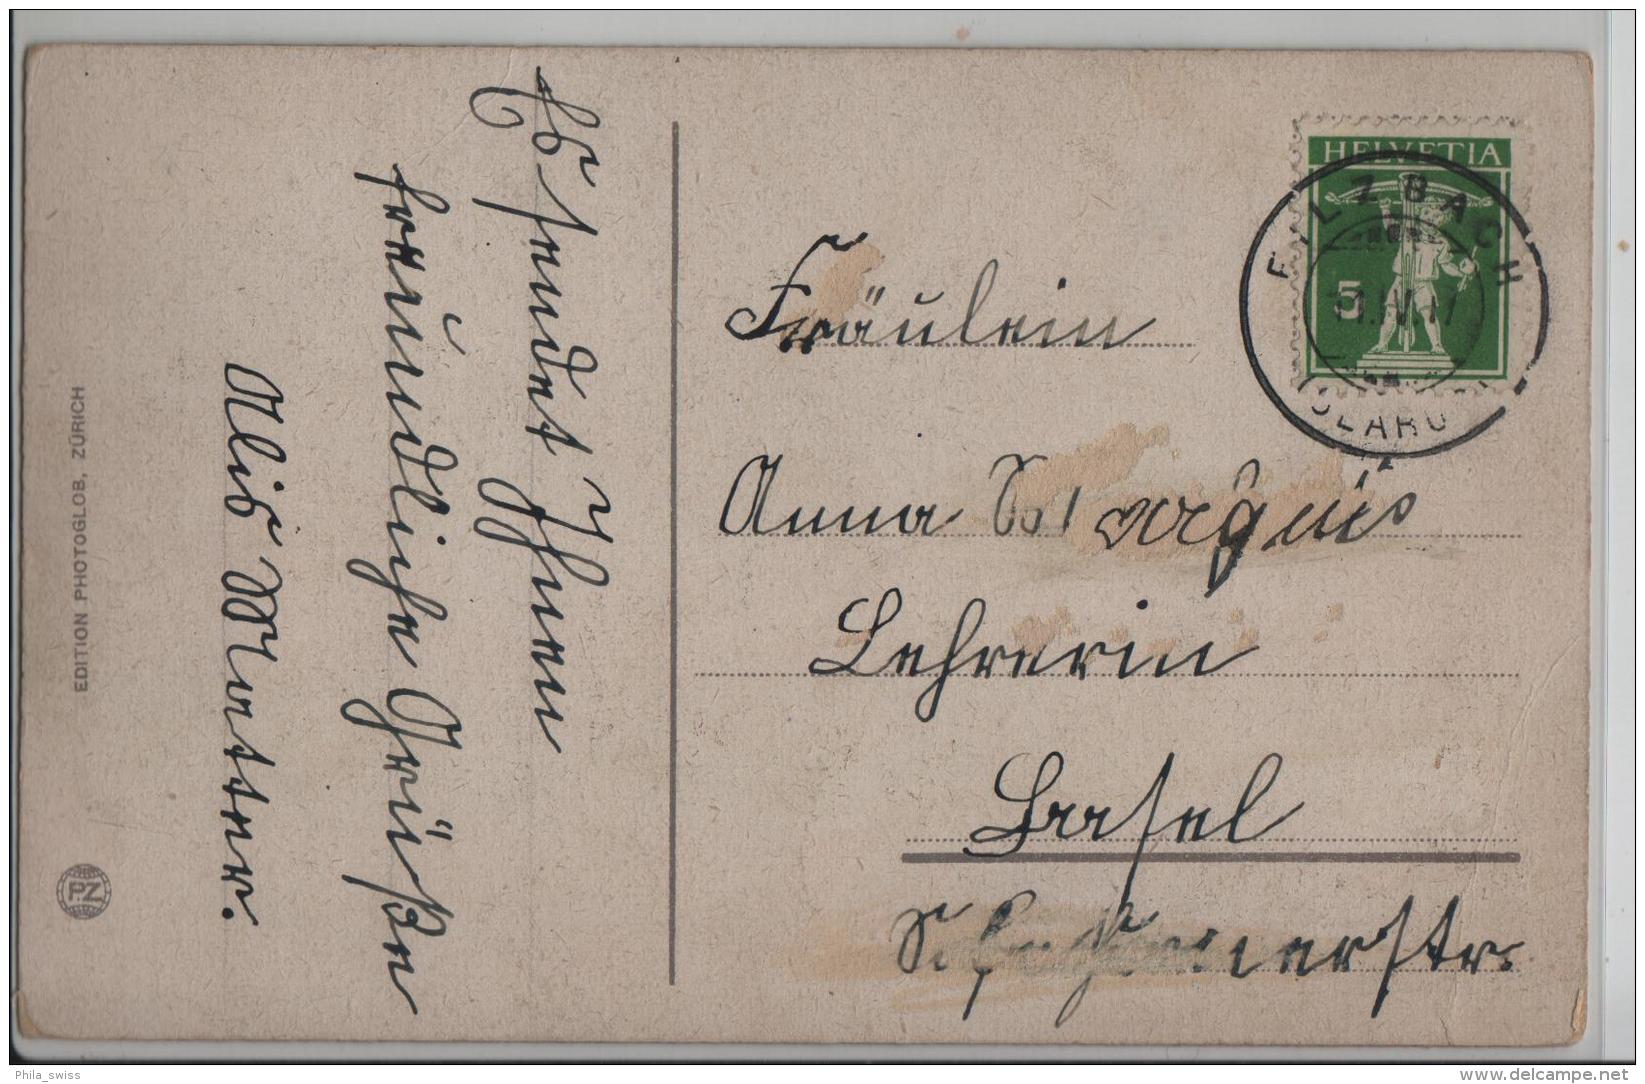 Es sendet Ihnen
freundliche Grüßen
Alis Matter.
EDITION PHOTOGLOB, ZÜRICH
PZ
HELVETIA
5
FILZBACH
IV.17
GLARU
Fräulein
Anna
Lehrerin
Basel
Phila_swiss
delcampe.net